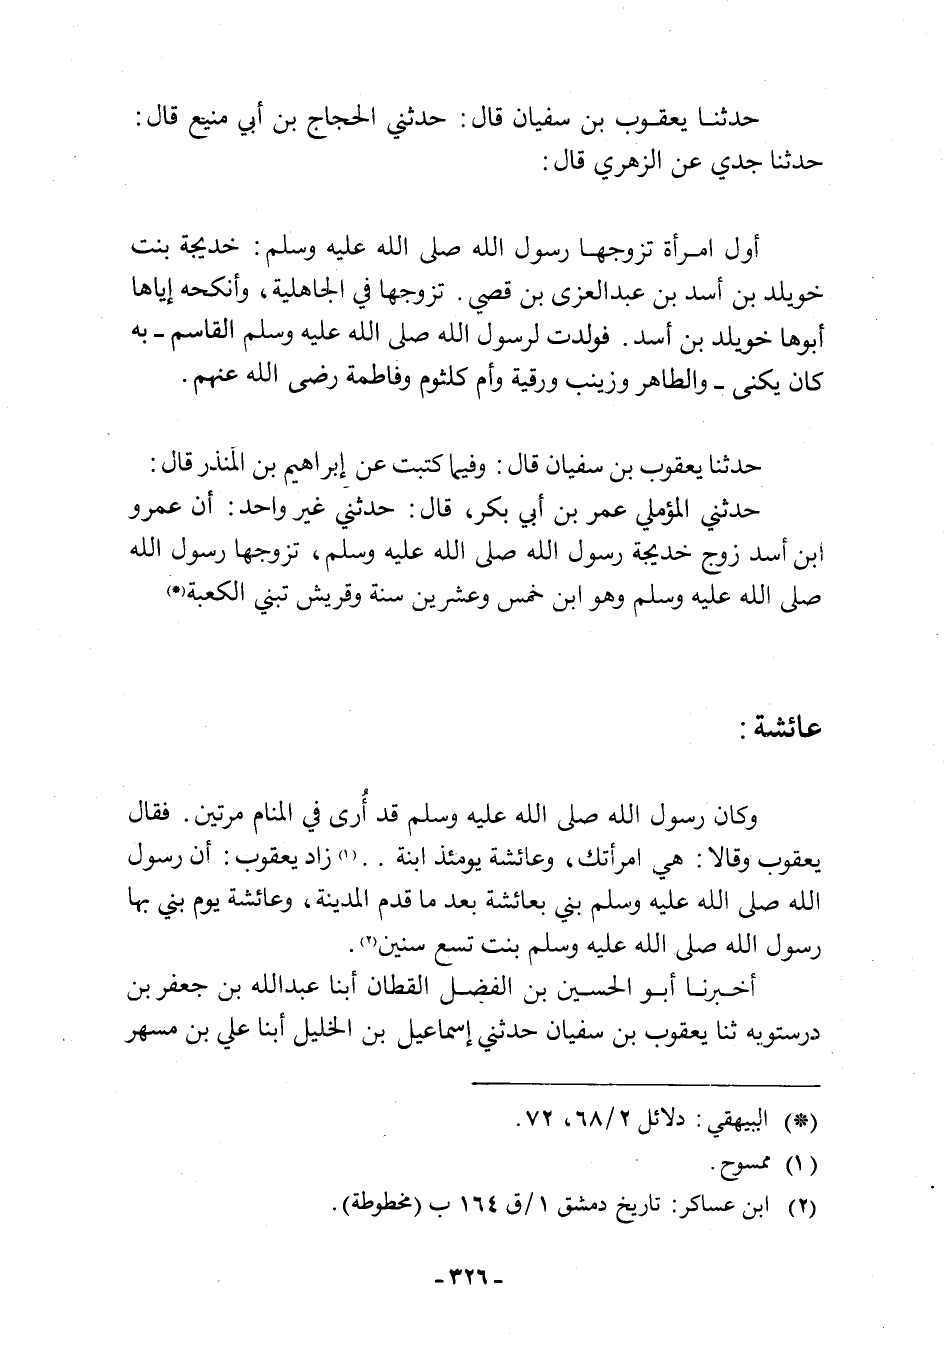 حدثنا يعقوب بن سفيان قال : حدثني الحجاج بن أبي منيع قال :
حدثنا جدي عن الزهري قال :
أول امرأة تزوجها رسول الله صلى الله عليه وسلم : خديجة بنت
خويلد بن أسد بن عبدالعزى بن قصي . تزوجها في الجاهلية ، وأنكحه إياها
أبوها خويلد بن أسد . فولدت لرسول الله صلى الله عليه وسلم القاسم ـ به
كان يكنى ـ والطاهر وزينب ورقية وأم كلثوم وفاطمة رضى الله عنهم .
حدثنا يعقوب بن سفيان قال : وفيما كتبت عن إبراهيم بن المنذر قال :
حدثني المؤملي عمر بن أبي بكر، قال : حدثني غير واحد : أن عمرو
ابن أسد زوج خديجة رسول الله صلى الله عليه وسلم ، تزوجها رسول الله
صلى الله عليه وسلم وهو ابن خمس وعشرين سنة وقريش تبني الكعبة(*)
عائشة :
وكان رسول الله صلى الله عليه وسلم قد أُرى في المنام مرتين . فقال
يعقوب وقالا : هي امرأتك ، وعائشة يومئذ ابنة . . (١) زاد يعقوب : أن رسول
الله صلى الله عليه وسلم بني بعائشة بعد ما قدم المدينة ، وعائشة يوم بني بها
رسول الله صلى الله عليه وسلم بنت تسع سنين(٢) .
أخبرنا أبو الحسين بن الفضل القطان أبنا عبدالله بن جعفر بن
درستويه ثنا يعقوب بن سفيان حدثني إسماعيل بن الخليل أبنا علي بن مسهر
(*) البيهقي : دلائل ٢/ ٦٨ ، ٧٢ .
(١) ممسوح .
(٢) ابن عساكر : تاريخ دمشق ١/ق ١٦٤ ب (مخطوطة) .
ـ ٣٢٦ ـ